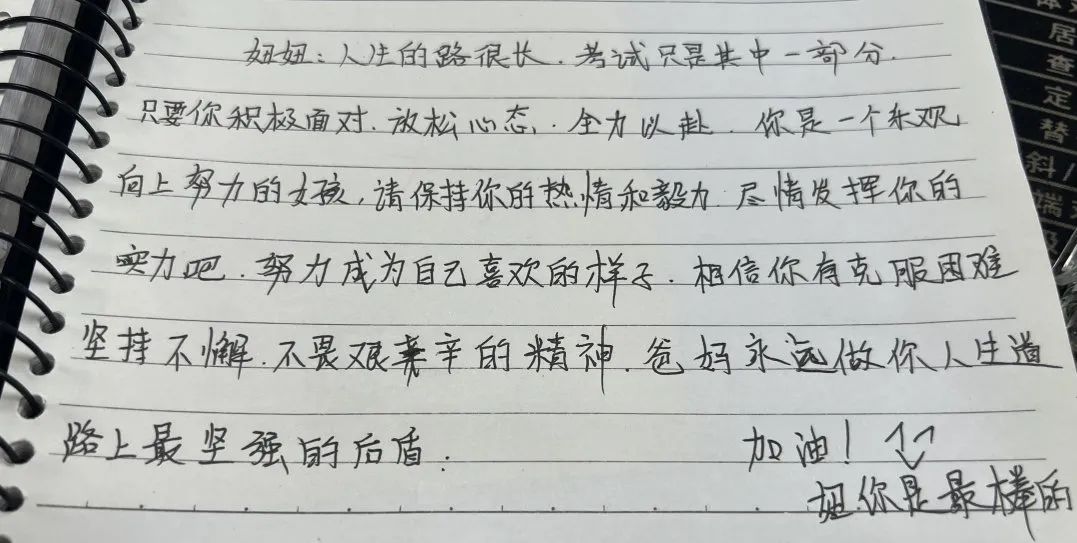 妞妞：人生的路很长．考试只是其中一部分．
只要你积极面对．放松心态．全力以赴．你是一个乐观
向上努力的女孩，请保持你的热情和毅力．尽情发挥你的
实力吧．努力成为自己喜欢的样子．相信你有克服困难
坚持不懈．不畏艰辛的精神．爸妈永远做你人生道
路上最坚强的后盾．
加油！
妞你是最棒的
居
查
定
替
斜/
端